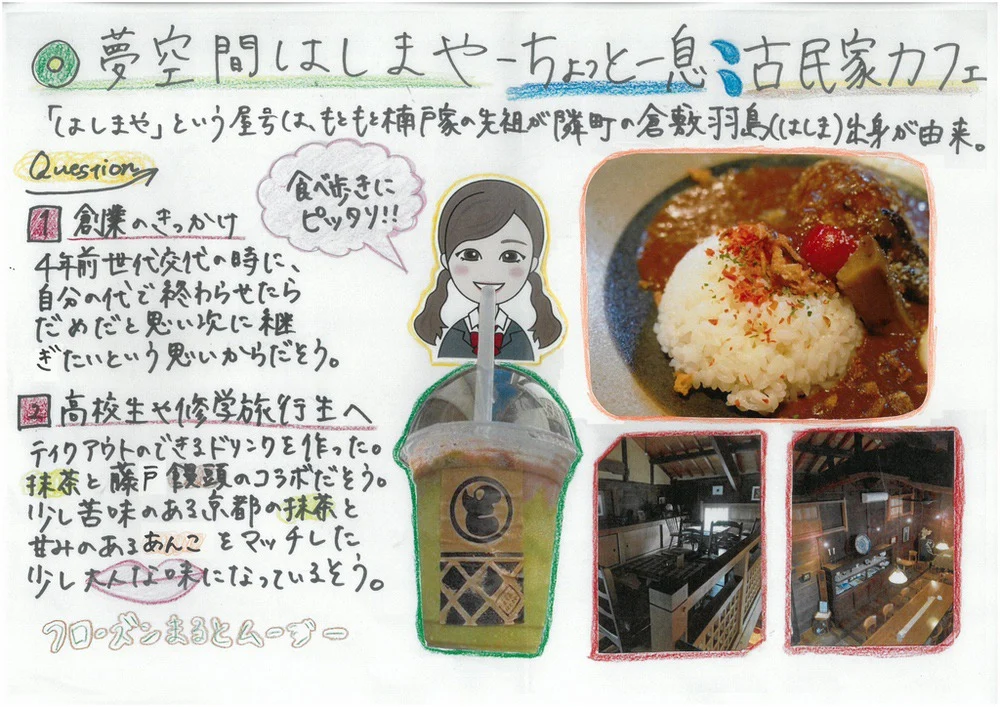 夢空間はしまや-ちょっと一息 古民家カフェ
「はしまや」という屋号は、もともと楠戸家の先祖が隣町の倉敷羽島(はしま)出身が由来。
Question
1 創業のきっかけ
4年前世代交代の時に、
自分の代で終わらせたら
だめだと思い次に継
ぎたいという思いからだそう。
2 高校生や修学旅行生へ
テイクアウトのできるドリンクを作った。
抹茶と藤戸饅頭のコラボだそう。
少し苦味のある京都の抹茶と
甘みのあるあんこをマッチした
少し大人な味になっているそう。
フローズンまるとムージー
食べ歩きに
ピッタリ!!
と